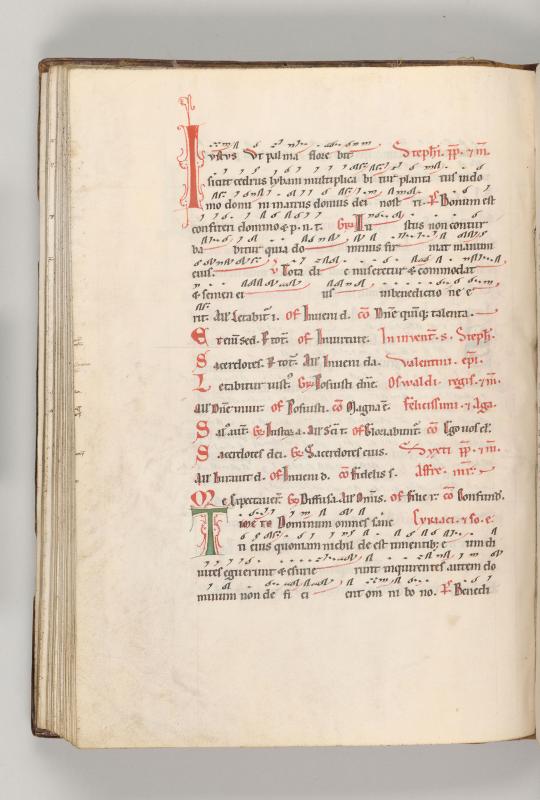 Iustus ut palma flore bit Stephi. pp. & m.
sicut cedrus lybani multiplica bi tur planta tus in do
mo domi ni in atriis domus dei nost ri. Ps Bonum est
confiteri domino & p. n. t. Gr Iu stus non contur
ba bitur quia do minus fir mat manum
eius. v Tota di e miseretur & commodat
& semen ei us in benedictio ne e
rit. All Letabit i. of In veni d. co Dne quinq; talenta.
E t eni sed. Ps tot. of In virtute. In invent. s. Steph.
S acerdotes. Ps tot. All Inveni da. Valentini. epi.
L etabitur iust. Gr Posuisti dne. Oswaldi regis & m.
All Dne in uir. of Posuisti. co Magna e. felicissimi & Aga.
S al aut. Gr Iustor a. All Sci t. of Gloriabunt. co Ego uos el.
S acerdotes dei. Gr Sacerdotes eius. Syxti pp. & m.
All Iurauit d. of Inveni d. co Fidelis s. Affre. mr.
M e expectauer. Gr Diffusa. All Omis. of Filie r. co Confund.
Timete Dominum omnes sanc Cyriaci & so. e.
ti eius quoniam nichil de est timentib; e um di
uites eguerunt & esurie runt inquirentes autem do
minum non de fi ci ent om ni bo no. Ps Benedi